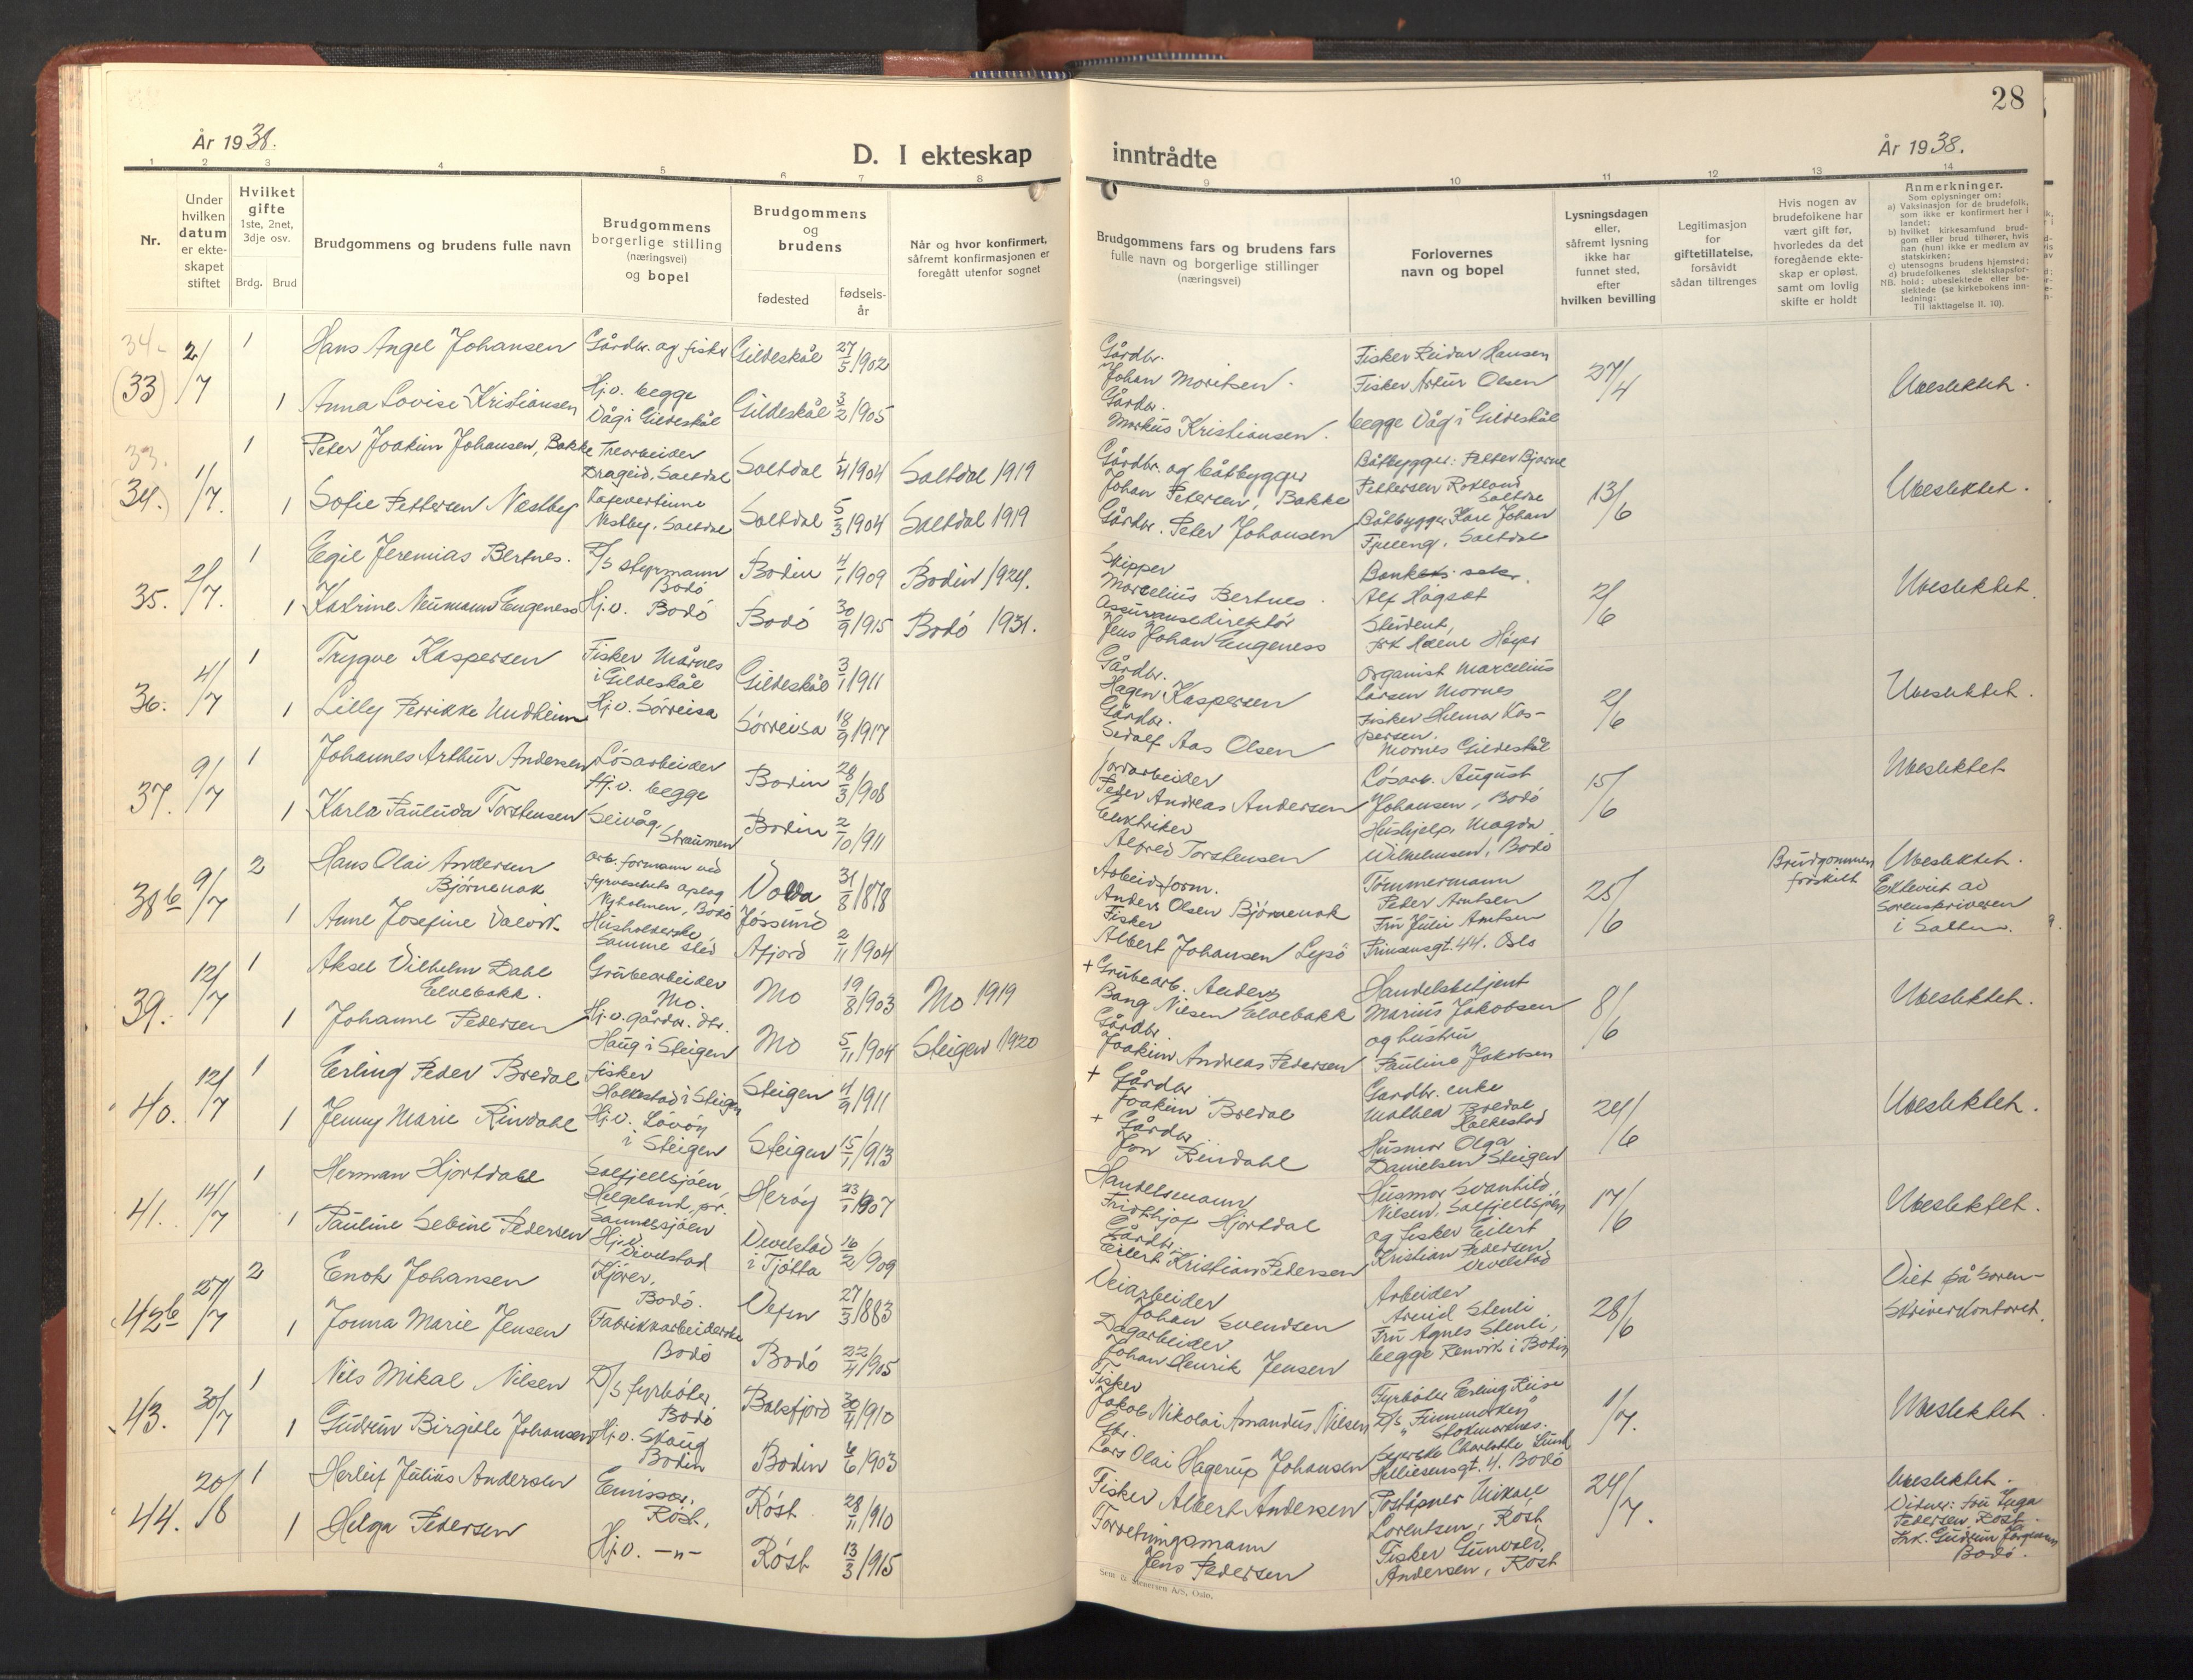 28
År 1938.
D. I ekteskap
inntrådte
År 1938.
1 2 3 4 5 6 7 8 9 10 11 12 13 14
Nr.
Under
hvilken
datum
er ekte-
skapet
stiftet
Hvilket
gifte
1ste, 2net,
3dje osv.
Brdg. Brud
Brudgommens og brudens fulle navn
Brudgommens
borgerlige stilling
(næringsvei)
og bopel
Brudgommens
og
brudens
fødested
fødsels-
år
Når og hvor konfirmert,
såfremt konfirmasjonen er
foregått utenfor sognet
Brudgommens fars og brudens fars
fulle navn og borgerlige stillinger
(næringsvei)
Forlovernes
navn og bopel
Lysningsdagen
eller,
såfremt lysning
ikke har
funnet sted,
efter
hvilken bevilling
Legitimasjon
for
giftetillatelse,
forsåvidt
sådan tiltrenges
Hvis nogen av
brudefolkene har
vært gift før,
hvorledes da det
foregående ekte-
skap er opløst,
samt om lovlig
skifte er holdt
Anmerkninger.
Som oplysninger om:
a) Vaksinasjon for de brudefolk,
som ikke er konfirmert her i
landet;
b) hvilket kirkesamfund brud-
gom eller brud tilhører, hvis
han (hun) ikke er medlem av
statskirken;
c) utensogns brudens hjemsted;
d) brudefolkenes slektskapsfor-
NB. hold: ubeslektede eller be-
slektede (se kirkebokens inn-
ledning;
Til iakttagelse II. 10).
34.
(33)
2/7
1
Hans Angel Johansen
Gårdbr. og fisker
Gildeskål
27/5 1902
Gårdbr.
Johan Moritsen.
Fisker Reidar Hansen
Fisker Artur Olsen
begge Våg i Gildeskål
27/4
Ubeslektet.
1
Anna Lovise Kristiansen
Hj.v. begge
Våg i Gildeskål
Gildeskål
3/2 1905
Gårdbr.
Markus Kristiansen.
33.
(34.)
1/7.
1
Peter Joakim Johansen, Bakke
Trearbeider
Drageid, Saltdal
Saltdal
1/4 1904
Saltdal 1919
Gårdbr. og båtbygger
Johan Petersen, Bakke
Båtbygger: Petter Bjarne
Pettersen Rokland
Saltdal
13/6
Ubeslektet.
1
Sofie Pettersen Næstby
Kafevertinne
Næstby, Saltdal
Saltdal
5/3 1904
Saltdal 1919
Gårdbr. Peter Johansen
Båtbygger Kare Johan
Fjelleng, Saltdal
35.
2/7.
1
Egil Jeremias Bertnes.
D/s styrmann
Bodö
Bodin
4/1 1909
Bodin 1924.
Skipper
Marcelius Bertnes.
Alf Hågset
2/6
Ubeslektet.
1
Katrine Neumann Engeness
Hj.v. Bodö
Bodö
30/9 1915
Bodö 1931.
Assuransedirektör
Jens Johan Engeness
Student,
36.
4/7
1
Trygve Kaspersen
Fisker Mårnes
i Gildeskål
Gildeskål
3/1 1911
Gårdbr.
Hagen Kaspersen
Organist Marcelius
Larsen Mornes
2/6
Ubeslektet.
1
Lilly Perrikke Undheim
Hj.v. Sörreisa
Sörreisa
18/9 1917
Gårdbr.
Sedalf Aas Olsen
Fisker Hilmar Kas-
persen.
Mornes Gildeskål
37.
9/7
1
Johannes Arthur Andersen
Lösarbeider
Hj.v. begge
Bodin
28/3 1908
Jordarbeider
Peder Andreas Andersen
Lösarb. August
Johansen, Bodö
15/6
Ubeslektet
1
Karla Pauluda Torstensen
Seivåg,
Straumen
Bodin
2/10 1911
Elektriker
Alfred Torstensen
Hushjelp. Magda
Wilhelmsen, Bodö
38 b
9/7
2
Hans Olai Andersen
Björnenak
arb. formann ved
fyrvesenets oplag
Nyholmen, Bodö
31/8 1878
Arbeidsform.
Anders Olsen Björnenak
Tömmermann
Peter Arntsen
25/6
Brudgommen
fraskilt
Ubeslektet.
Ektevիet av
Sorenskriveren
i Salten.
1
Anne Josefine Valvik.
Husholderske
samme sted
Jössund
Afjord
2/11 1904
Fisker
Albert Johansen Lysö
Fru Juli Arntsen
Prinsensgt. 44. Oslo
39.
12/7
1
Aksel Vilhelm Dahl
Elvebakk.
Grubearbeider
Mo.
Mo
19/8 1903
Mo 1919
+ Grubearb. Anders
Bang Nilsen Elvebakk
Handelsbetjent
Marius Jakobsen
8/6
Ubeslektet.
1
Johanne Pedersen
Hj.v. gårdbr. dtr.
Haug i Steigen
Mo
5/11 1904
Steigen 1920
Gårdbr.
Joakim Andreas Pedersen
og hustru
Pauline Jakobsen
40.
12/7
1
Erling Peder Bredal
Fisker
Holkestad i Steigen
Steigen
4/9 1911
+ Gårdbr
Joakim Bredal
Gardbr. enke
Mathea Bredal
Holkestad
24/6
Ubeslektet.
1
Jenny Marie Rindahl
Hj.v. Lövöy
i Steigen
Steigen
15/1 1913
+ Gårdbr
Jon Rindahl
Husmor Olga
Danielsen Steigen
41.
14/7
1
Herman Hjortdahl
Solfjellsjöen,
Helgeland, pr.
Sannessjöen
Heröy
23/1 1907
Handelsmann
Fridthjof Hjortdal
Husmor Svanhild
Nilsen, Solfjellsjöen
17/6
Ubeslektet.
1
Pauline Sebine Pedersen
Hj.v.
Vivelstad
Vevelstad
i Tjötta
16/2 1909
Gårdbr.
Eilert Kristian Pedersen
og fisker Eilert
Kristian Pedersen,
Vevelstad
42 b
27/7
2
Enok Johansen
Kjörer,
Bodö.
Vefsn
27/3 1883
Veiarbeider
Johan Svendsen
Arbeider
Arvid Stenli
28/6
Viet på Soren-
skriverkontoret.
1
Jonna Marie Jensen
Fabrikkarbeiderske
Bodö
Bodö
22/4 1905
Dagarbeider
Johan Henrik Jensen
Fru Agnes Stenli,
begge Rønvik i Bodin
43.
30/7
1
Nils Mikal Nilsen
D/s fyrböter
Bodö
Balsfjord
30/4 1910
Fisker
Jakob Nikolai Amandus Nilsen
Fyrböter Erling Reise
D/s "Finnmarken"
Stokmarknes.
1/7.
Ubeslektet
1
Gudrun Birgitte Johansen
Hj.v. Skaug
Bodin
Bodin
6/6 1903
Gbr.
Lars Olai Hagerup Johansen
Syerske Charlotte Lund
Hilliesensgt. 4. Bodö
44.
20/8
1
Herleif Julius Andersen
Emissær.
Röst,
Röst
28/11 1910
Fisker Albert Andersen
Poståpner Mikael
Lorentsen, Röst
24/7.
Ubeslektet.
Vitner: Fru Inga
Pedersen, Röst.
Frk. Gudrun Jörgensen
Bodö.
1
Helga Pedersen
Hj.v. —"—
Röst
13/3 1915
Forretningsmann
Jens Pedersen
Fisker Gunvald
Andersen, Röst
Sem & Stenersen A/S, Oslo.